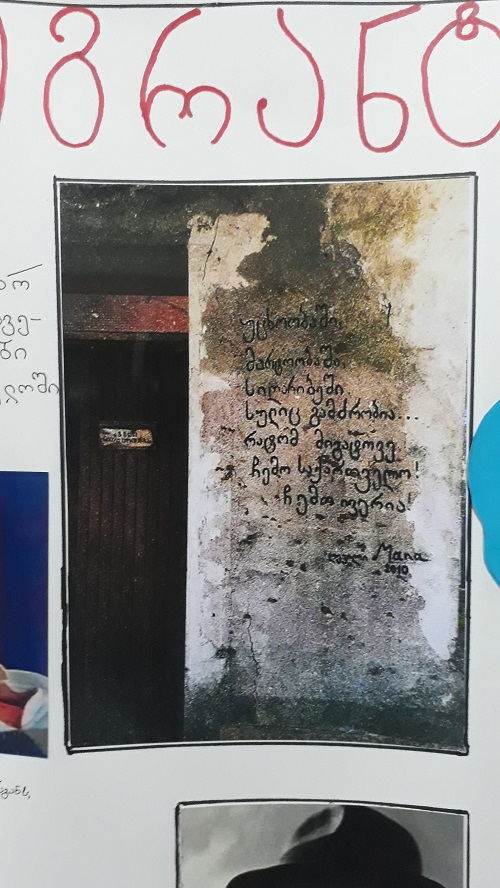 გრანტ
უცხოობაში,
მარტოობაში,
სიღარიბეში,
სულიც გამძრობია...
რატომ მიგატოვე
ჩემო საქართველო!
ჩემო ფერია!
ლელი Mana
2010.